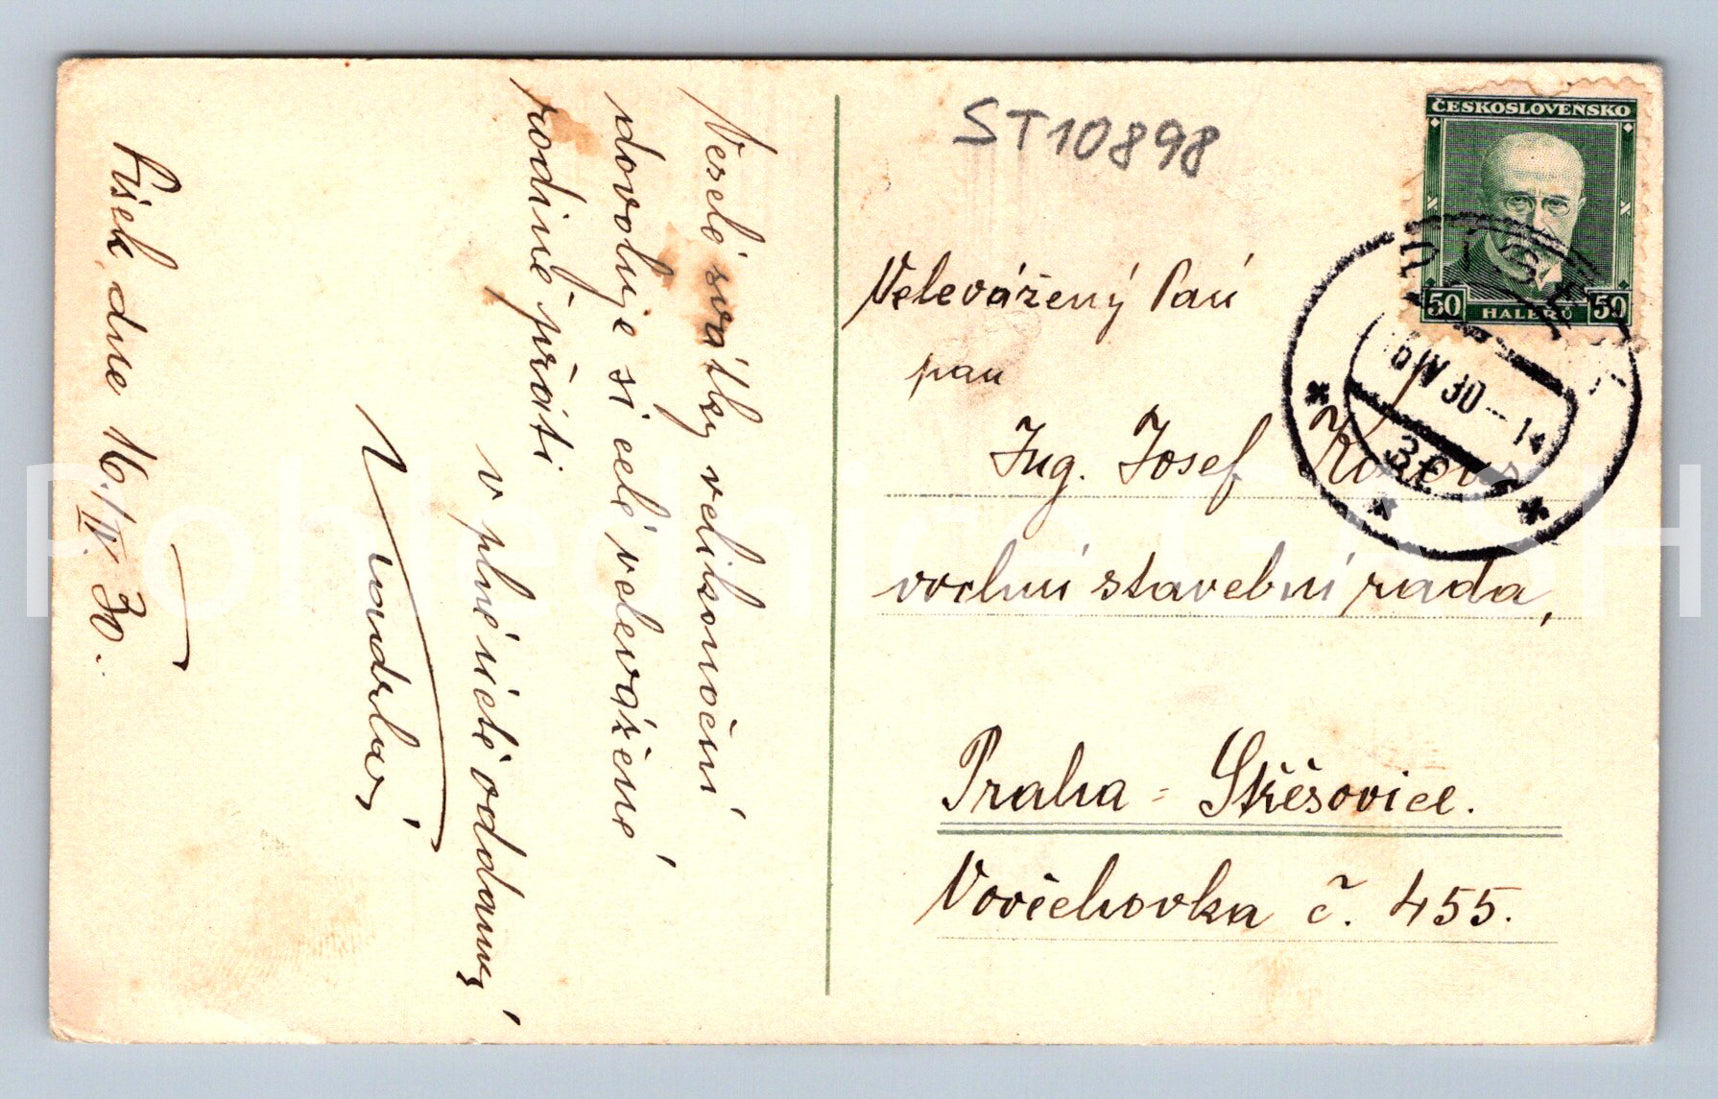 Veselé svátky velikonoční
dovoluje si celé velevážené
rodině přáti
v plné úctě oddaný
Písek, dne 16./IV. 30.
ST10898
ČESKOSLOVENSKO
50 HALÉŘŮ 50
16/IV 30-14
3c
Velevážený Pan
pan
Ing. Josef
vrchní stavební rada,
Praha - Střešovice.
Vořechovka č. 455.